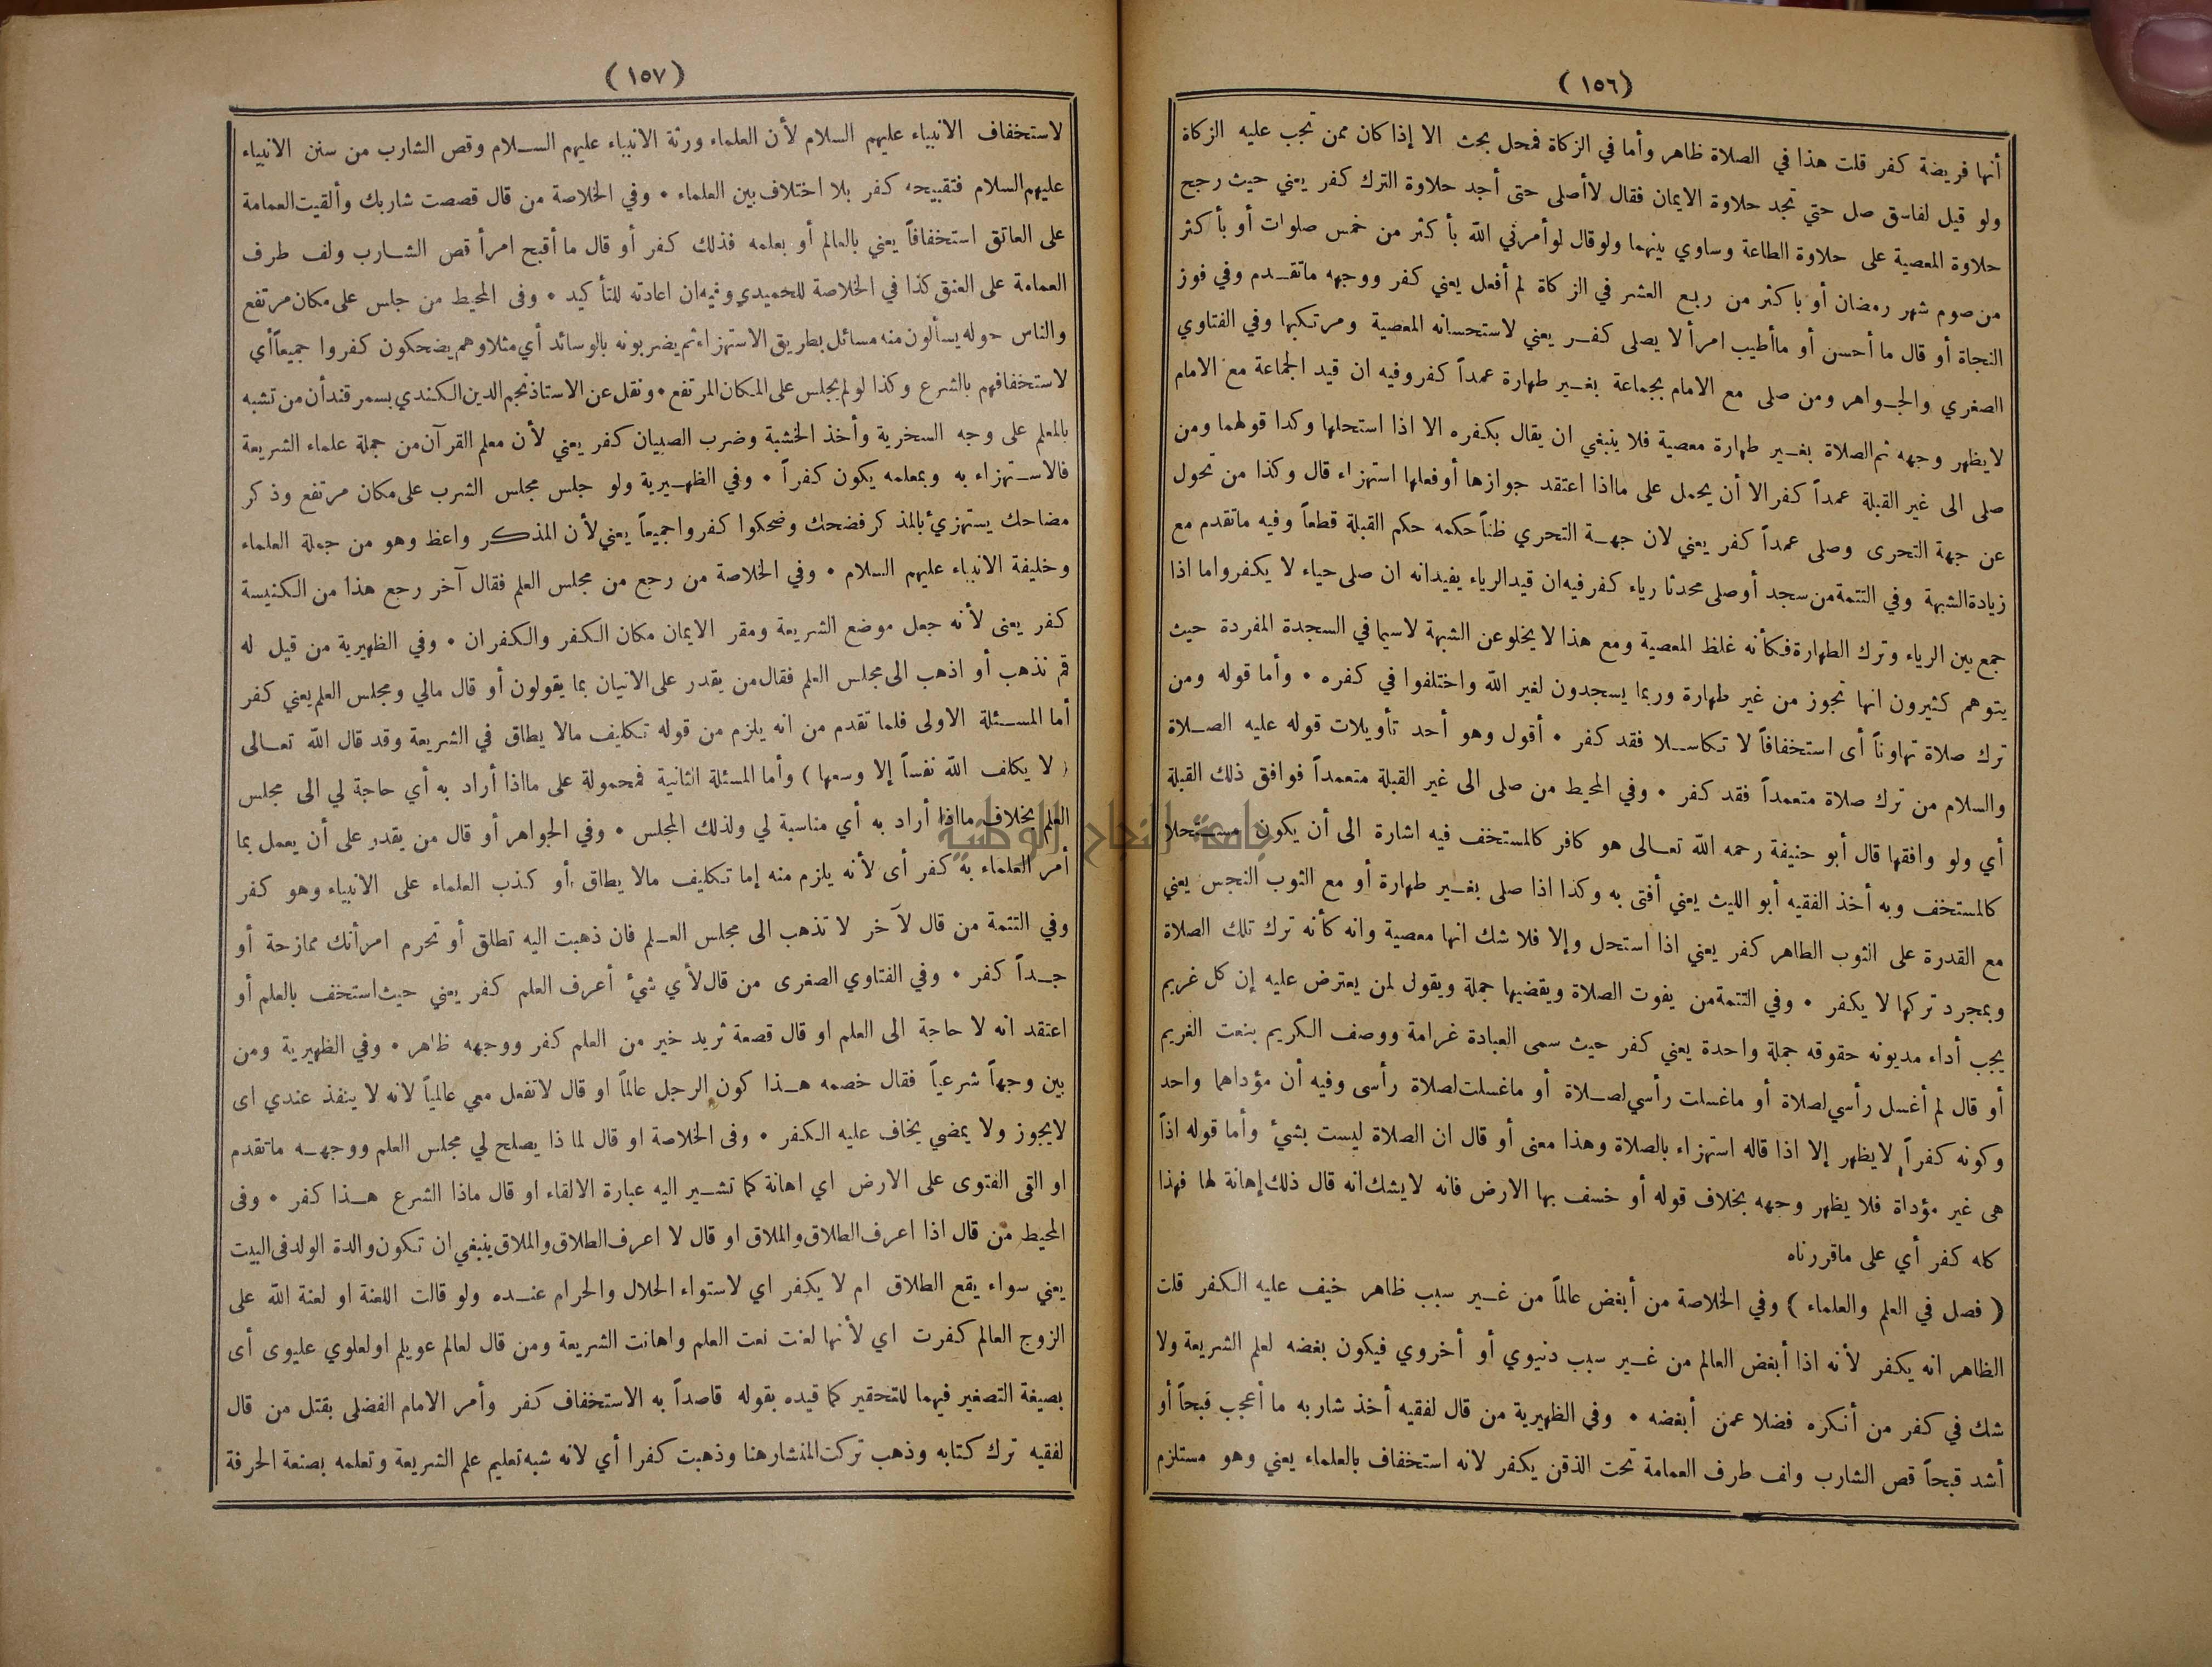 (١٥٦)
أنها فريضة كفر قلت هذا في الصلاة ظاهر وأما في الزكاة فمحل بحث الا إذا كان ممن تجب عليه الزكاة
ولو قيل لفاسق صل حتي تجد حلاوة الايمان فقال لاأصلى حتى أجد حلاوة الترك كفر يعني حيث رجح
حلاوة المعصية على حلاوة الطاعة وساوي بينهما ولوقال لوأمرني الله بأكثر من خمس صلوات أو بأكثر
من صوم شهر رمضان أو باكثر من ربع العشر في الزكاة لم أفعل يعني كفر ووجهه ماتقدم وفي فوز
النجاة أو قال ما أحسن أو ماأطيب امرأ لا يصلى كفر يعني لاستحسانه المعصية ومرتكبها وفي الفتاوي
الصغري والجواهر ومن صلى مع الامام بجماعة بغير طهارة عمداً كفر وفيه ان قيد الجماعة مع الامام
لايظهر وجهه ثم الصلاة بغير طهارة معصية فلا ينبغي ان يقال بكفره الا اذا استحلها وكذا قولهما ومن
صلى الى غير القبلة عمداً كفر الا أن يحمل على مااذا اعتقد جوازها أوفعلها استهزاء قال وكذا من تحول
عن جهة التحرى وصلى عمداً كفر يعني لان جهة التحري ظناً حكمه حكم القبلة قطعاً وفيه ماتقدم مع
زيادة الشبهة وفي التتمة من سجد أوصلى محدثا رياء كفر فيه ان قيد الرياء يفيد انه ان صلى حياء لا يكفر واما اذا
جمع بين الرياء وترك الطهارة فكأنه غلظ المعصية ومع هذا لا يخلو عن الشبهة لاسيما في السجدة المفردة حيث
يتوهم كثيرون انها تجوز من غير طهارة وربما يسجدون لغير الله واختلفوا في كفره • وأما قوله ومن
ترك صلاة تهاوناً أى استخفافاً لا تكاسلا فقد كفر • أقول وهو أحد تأويلات قوله عليه الصلاة
والسلام من ترك صلاة متعمداً فقد كفر • وفي المحيط من صلى الى غير القبلة متعمداً فوافق ذلك القبلة
أي ولو وافقها قال أبو حنيفة رحمه الله تعالى هو كافر كالمستخف فيه اشارة الى أن يكون مستحلا
كالمستخف وبه أخذ الفقيه أبو الليث يعني أفتى به وكذا اذا صلى بغير طهارة أو مع الثوب النجس يعني
مع القدرة على الثوب الطاهر كفر يعني اذا استحل وإلا فلا شك انها معصية وانه كأنه ترك تلك الصلاة
وبمجرد تركها لا يكفر • وفي التتمة من يفوت الصلاة ويقضيها جملة ويقول لمن يعترض عليه إن كل غريم
يجب أداء مديونه حقوقه جملة واحدة يعني كفر حيث سمى العبادة غرامة ووصف الكريم بنعت الغريم
أو قال لم أغسل رأسي لصلاة أو ماغسلت رأسي لصلاة أو ماغسلت لصلاة رأسى وفيه أن مؤداهما واحد
وكونه كفراً لايظهر إلا اذا قاله استهزاء بالصلاة وهذا معنى أو قال ان الصلاة ليست بشيء وأما قوله اذاً
هى غير مؤداة فلا يظهر وجهه بخلاف قوله أو خسف بها الارض فانه لايشك انه قال ذلك إهانة لها فهذا
كله كفر أي على ماقررناه
( فصل في العلم والعلماء ) وفي الخلاصة من أبغض عالماً من غير سبب ظاهر خيف عليه الكفر قلت
الظاهر انه يكفر لأنه اذا أبغض العالم من غير سبب دنيوي أو أخروي فيكون بغضه لعلم الشريعة ولا
شك في كفر من أنكره فضلا عمن أبغضه • وفي الظهيرية من قال لفقيه أخذ شاربه ما أعجب قبحاً أو
أشد قبحاً قص الشارب ولف طرف العمامة تحت الذقن يكفر لانه استخفاف بالعلماء يعني وهو مستلزم
(١٥٧)
لاستخفاف الانبياء عليهم السلام لأن العلماء ورثة الانبياء عليهم السلام وقص الشارب من سنن الانبياء
عليهم السلام فتقبيحه كفر بلا اختلاف بين العلماء • وفي الخلاصة من قال قصصت شاربك وألقيت العمامة
على العاتق استخفافاً يعني بالعالم أو بعلمه فذلك كفر أو قال ما أقبح امرأ قص الشارب ولف طرف
العمامة على العنق كذا في الخلاصة للحميدي وفيه ان اعادته للتأكيد • وفى المحيط من جلس على مكان مرتفع
والناس حوله يسألون منه مسائل بطريق الاستهزاء ثم يضربونه بالوسائد أي مثلا وهم يضحكون كفروا جميعاً أي
لاستخفافهم بالشرع وكذا لو لم يجلس على المكان المرتفع • ونقل عن الاستاذ نجم الدين الكندي بسمرقند أن من تشبه
بالمعلم على وجه السخرية وأخذ الخشبة وضرب الصبيان كفر يعني لأن معلم القرآن من جملة علماء الشريعة
فالاستهزاء به وبمعلمه يكون كفراً • وفي الظهيرية ولو جلس مجلس الشرب على مكان مرتفع وذكر
مضاحك يستهزيء بالمذكر فضحك وضحكوا كفروا جميعاً يعني لأن المذكر واعظ وهو من جملة العلماء
وخليفة الانبياء عليهم السلام • وفي الخلاصة من رجع من مجلس العلم فقال آخر رجع هذا من الكنيسة
كفر يعنى لأنه جعل موضع الشريعة ومقر الايمان مكان الكفر والكفران • وفي الظهيرية من قيل له
قم نذهب أو اذهب الى مجلس العلم فقال من يقدر على الاتيان بما يقولون أو قال مالي ومجلس العلم يعني كفر
أما المسئلة الاولى فلما تقدم من انه يلزم من قوله تكليف مالا يطاق في الشريعة وقد قال الله تعالى
( لا يكلف الله نفساً إلا وسعها ) وأما المسئلة الثانية فمحمولة على مااذا أراد به أي حاجة لي الى مجلس
العلم بخلاف مااذا أراد به أي مناسبة لي ولذلك المجلس • وفي الجواهر أو قال من يقدر على أن يعمل بما
أمر العلماء به كفر أى لأنه يلزم منه إما تكليف مالا يطاق أو كذب العلماء على الانبياء وهو كفر
وفي التتمة من قال لآخر لا تذهب الى مجلس العلم فان ذهبت اليه تطلق أو تحرم امرأتك ممازحة أو
جداً كفر • وفي الفتاوي الصغرى من قال لأي شيء أعرف العلم كفر يعني حيث استخف بالعلم أو
اعتقد انه لا حاجة الى العلم او قال قصعة ثريد خير من العلم كفر ووجهه ظاهر • وفي الظهيرية ومن
بين وجهاً شرعياً فقال خصمه هذا كون الرجل عالماً او قال لاتفعل معي عالمياً لانه لا ينفذ عندي اى
لايجوز ولا يمضي يخاف عليه الكفر • وفى الخلاصة او قال لما ذا يصلح لي مجلس العلم ووجهه ماتقدم
او القى الفتوى على الارض اي اهانة كما تشير اليه عبارة الالقاء او قال ماذا الشرع هذا كفر • وفى
المحيط من قال اذا اعرف الطلاق والملاق او قال لا اعرف الطلاق والملاق ينبغي ان تكون والدة الولد فى البيت
يعني سواء يقع الطلاق ام لا يكفر اي لاستواء الحلال والحرام عنده ولو قالت اللعنة او لعنة الله على
الزوج العالم كفرت اي لأنها لعنت نعت العلم واهانت الشريعة ومن قال لعالم عويلم او لعلوي عليوى أى
بصيغة التصغير فيهما للتحقير كما قيده بقوله قاصداً به الاستخفاف كفر وأمر الامام الفضلى بقتل من قال
لفقيه ترك كتابه وذهب تركت المنشار هنا وذهبت كفرا أي لانه شبه تعليم علم الشريعة وتعلمه بصنعة الحرفة
جامعة النجاح الوطنية